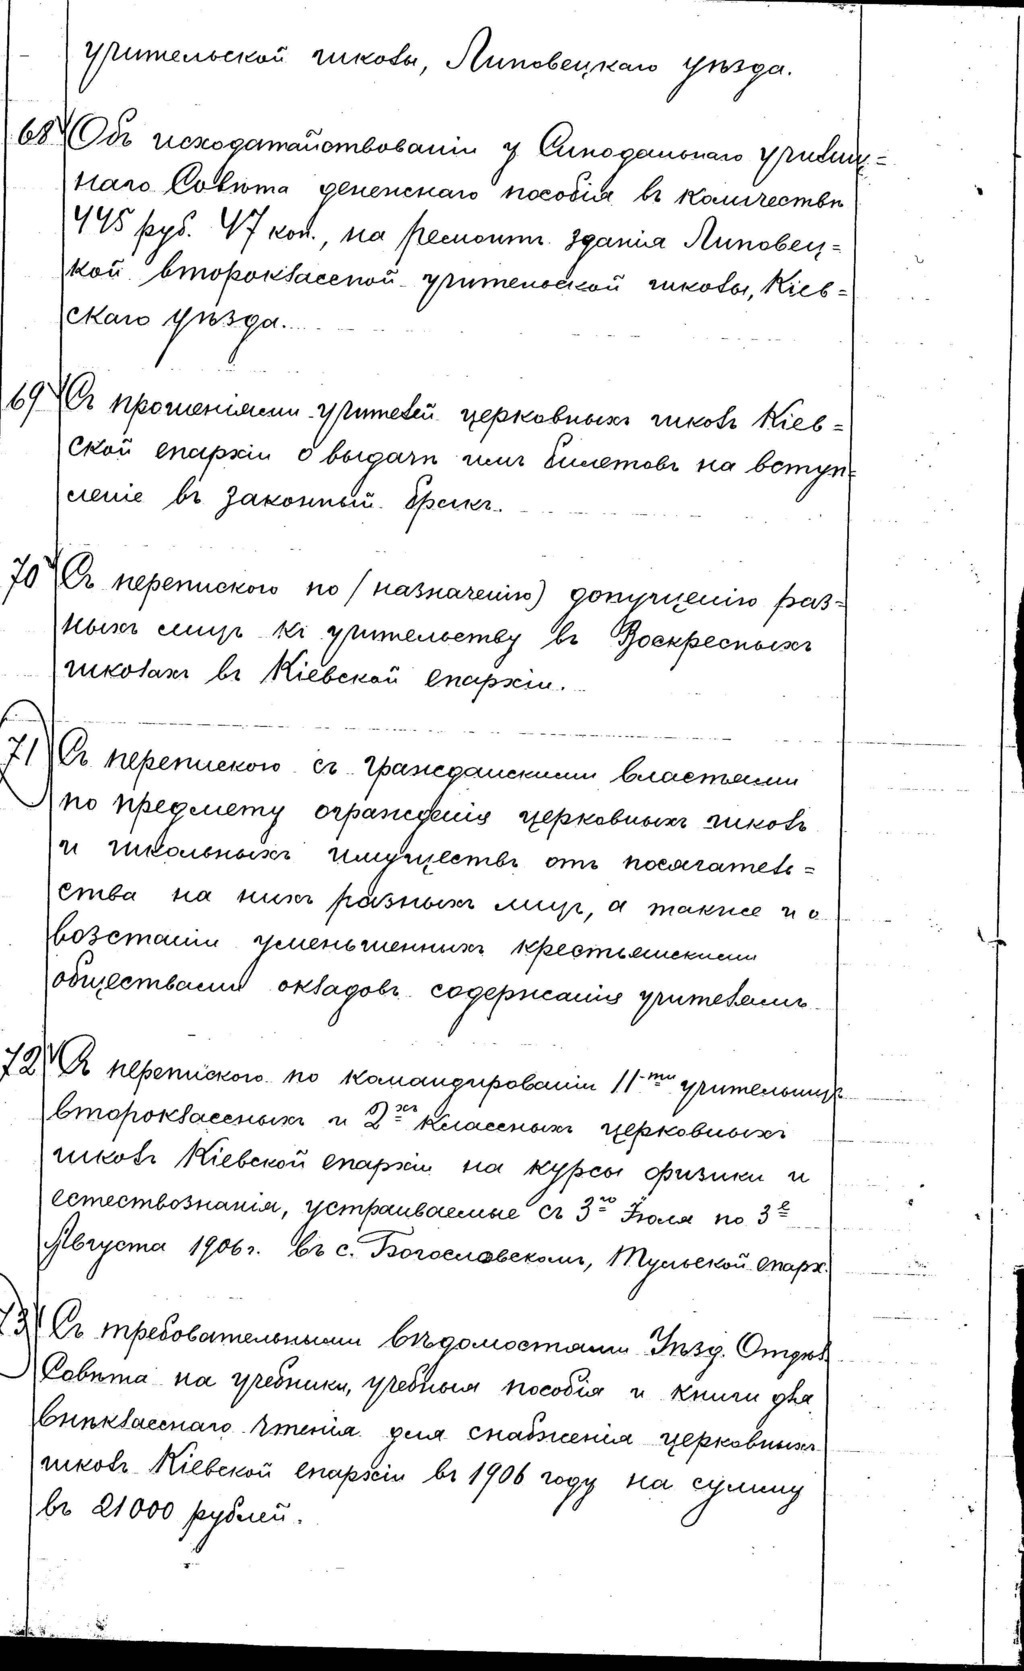 учительской школы, Липовецкаго уѣзда.
68 Объ исходатайствованіи у Синодальнаго Училищ=
наго Совѣта денежнаго пособія въ количествѣ
445 руб. 47 коп., на ремонтъ зданія Липовец=
кой второклассной учительской школы, Кіев=
скаго уѣзда.
69 Съ прошеніями учителей церковныхъ школъ Кіев=
ской епархіи о выдачѣ имъ билетовъ на вступ=
леніе въ законный бракъ.
70 Съ перепискою по (назначенію) допущенію раз=
ныхъ лицъ къ учительству въ Воскресныхъ
школахъ въ Кіевской епархіи.
71 Съ перепискою съ гражданскими властями
по предмету огражденія церковныхъ школъ
и школьныхъ имуществъ отъ посягатель=
ства на нихъ разныхъ лицъ, а также и о
возстаніи уменьшенныхъ крестьянскими
обществами окладовъ содержанія учителямъ
72 Съ перепискою по командированіи 11-ти учительницъ
второклассныхъ и 2хъ классныхъ церковныхъ
школъ Кіевской епархіи на курсы физики и
естествознанія, устраиваемые съ 3го Іюля по 3е
Августа 1906 г. въ с. Богословскомъ, Тульской епарх.
73 Съ требовательными вѣдомостями Уѣзд. Отдѣл.
Совѣта на учебники, учебныя пособія и книги для
внѣкласснаго чтенія для снабженія церковныхъ
школъ Кіевской епархіи въ 1906 году на сумму
въ 21000 рублей.